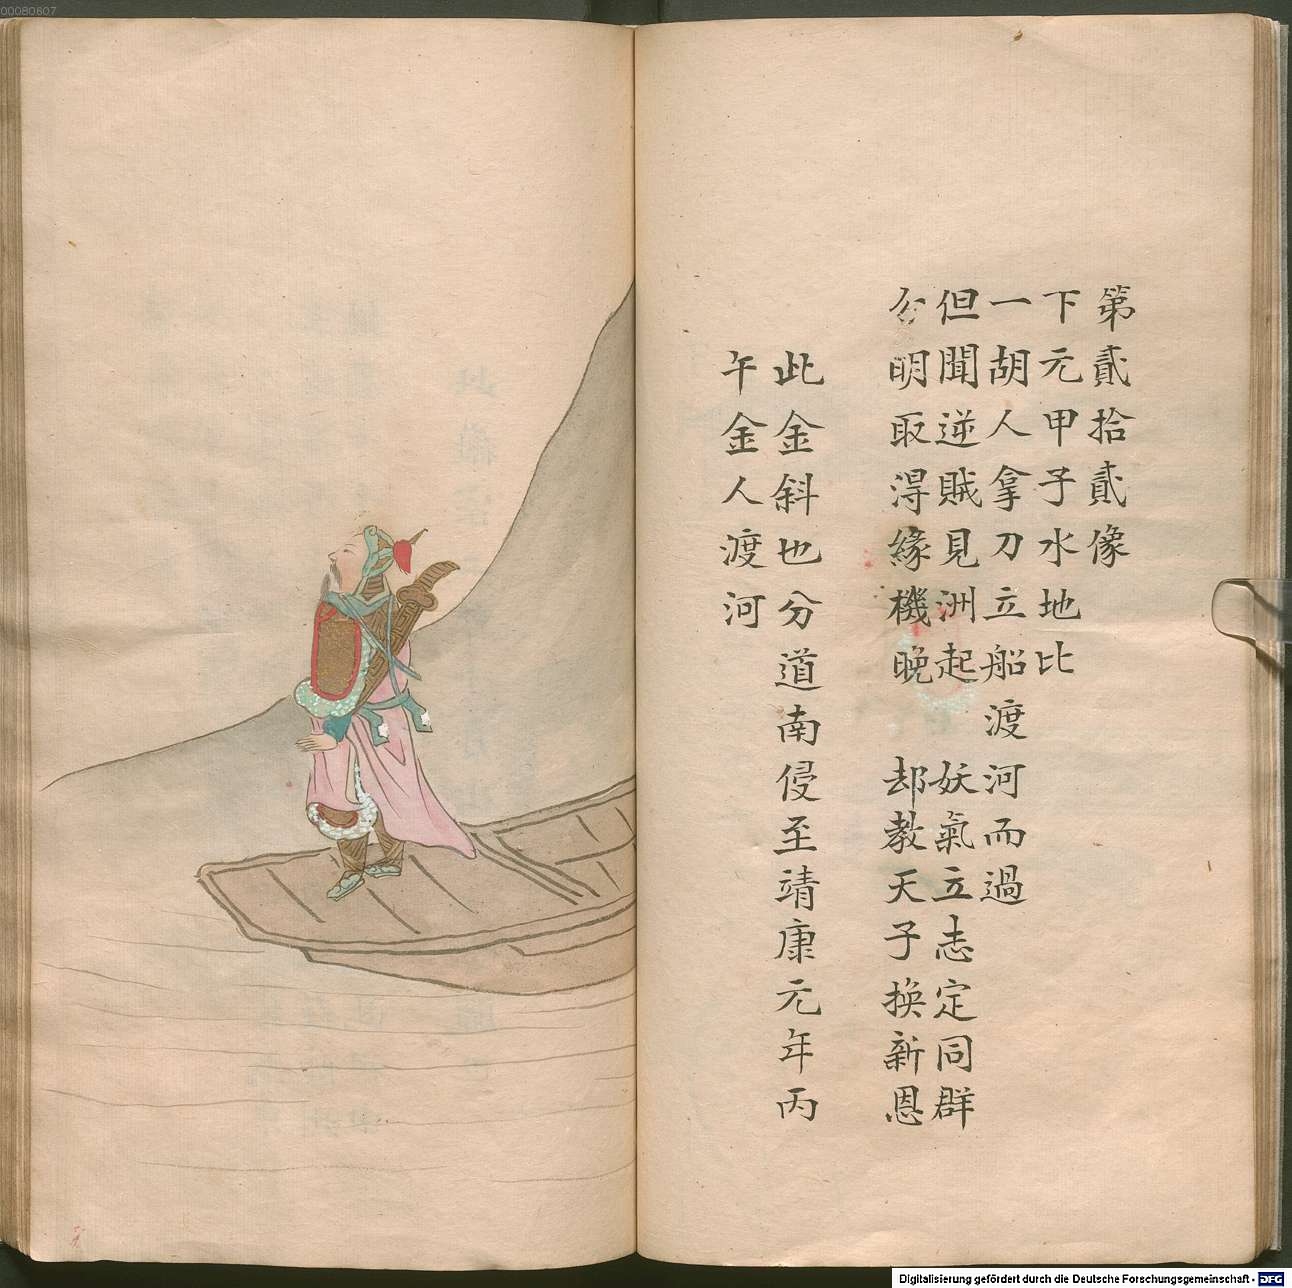 00080607
第貳拾貳像
下元甲子水地比
一胡人拿刀立船渡河而過
但聞逆賊見洲起 妖氣立志定同群
分明取得緣機晚 却教天子換新恩
此金斜也分道南侵至靖康元年丙
午金人渡河
Digitalisierung gefördert durch die Deutsche Forschungsgemeinschaft - DFG